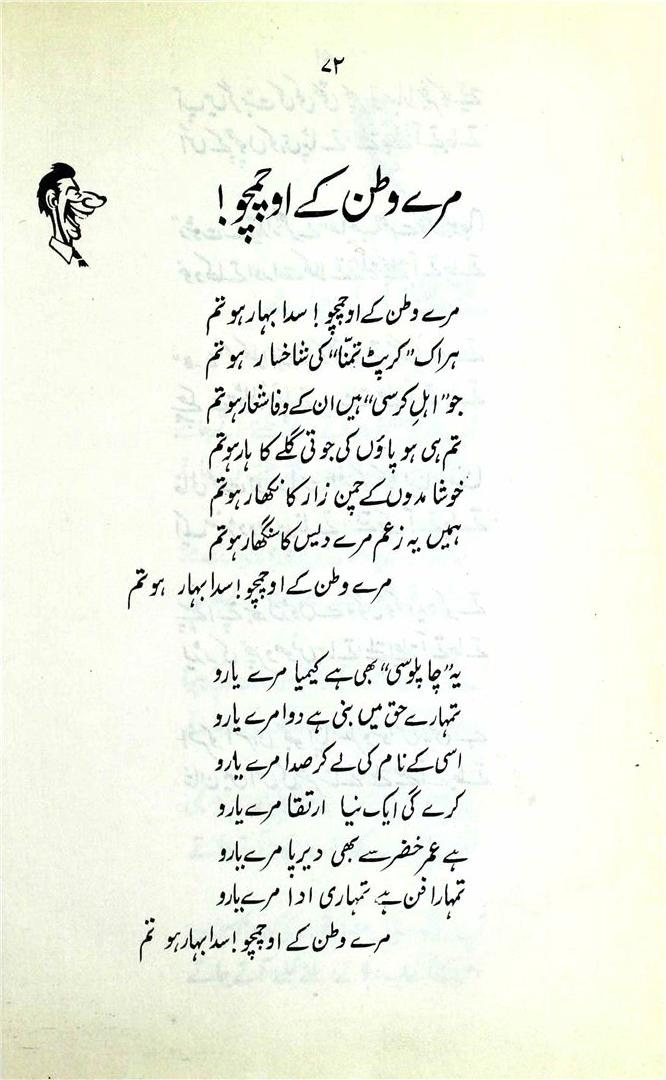 ۷۲
مرے وطن کے او چمچو!
مرے وطن کے او چمچو! سدا بہار ہو تم
ہر اک "کرپٹ تمنّا" کی شاخسار ہو تم
جو "اہلِ کرسی" ہیں ان کے وفا شعار ہو تم
تم ہی ہو پاؤں کی جوتی گلے کا ہار ہو تم
خوشامدوں کے چمن زار کا نکھار ہو تم
ہمیں یہ زعم مرے دیس کا سنگھار ہو تم
مرے وطن کے او چمچو! سدا بہار ہو تم
یہ "چاپلوسی" بھی ہے کیمیا مرے یارو
تمہارے حق میں بنی ہے دوا مرے یارو
اسی کے نام کی لے کر صدا مرے یارو
کرے گی ایک نیا ارتقا مرے یارو
ہے عمر خضر سے بھی دیرپا مرے یارو
تمہارا فن ہے تمہاری ادا مرے یارو
مرے وطن کے او چمچو! سدا بہار ہو تم